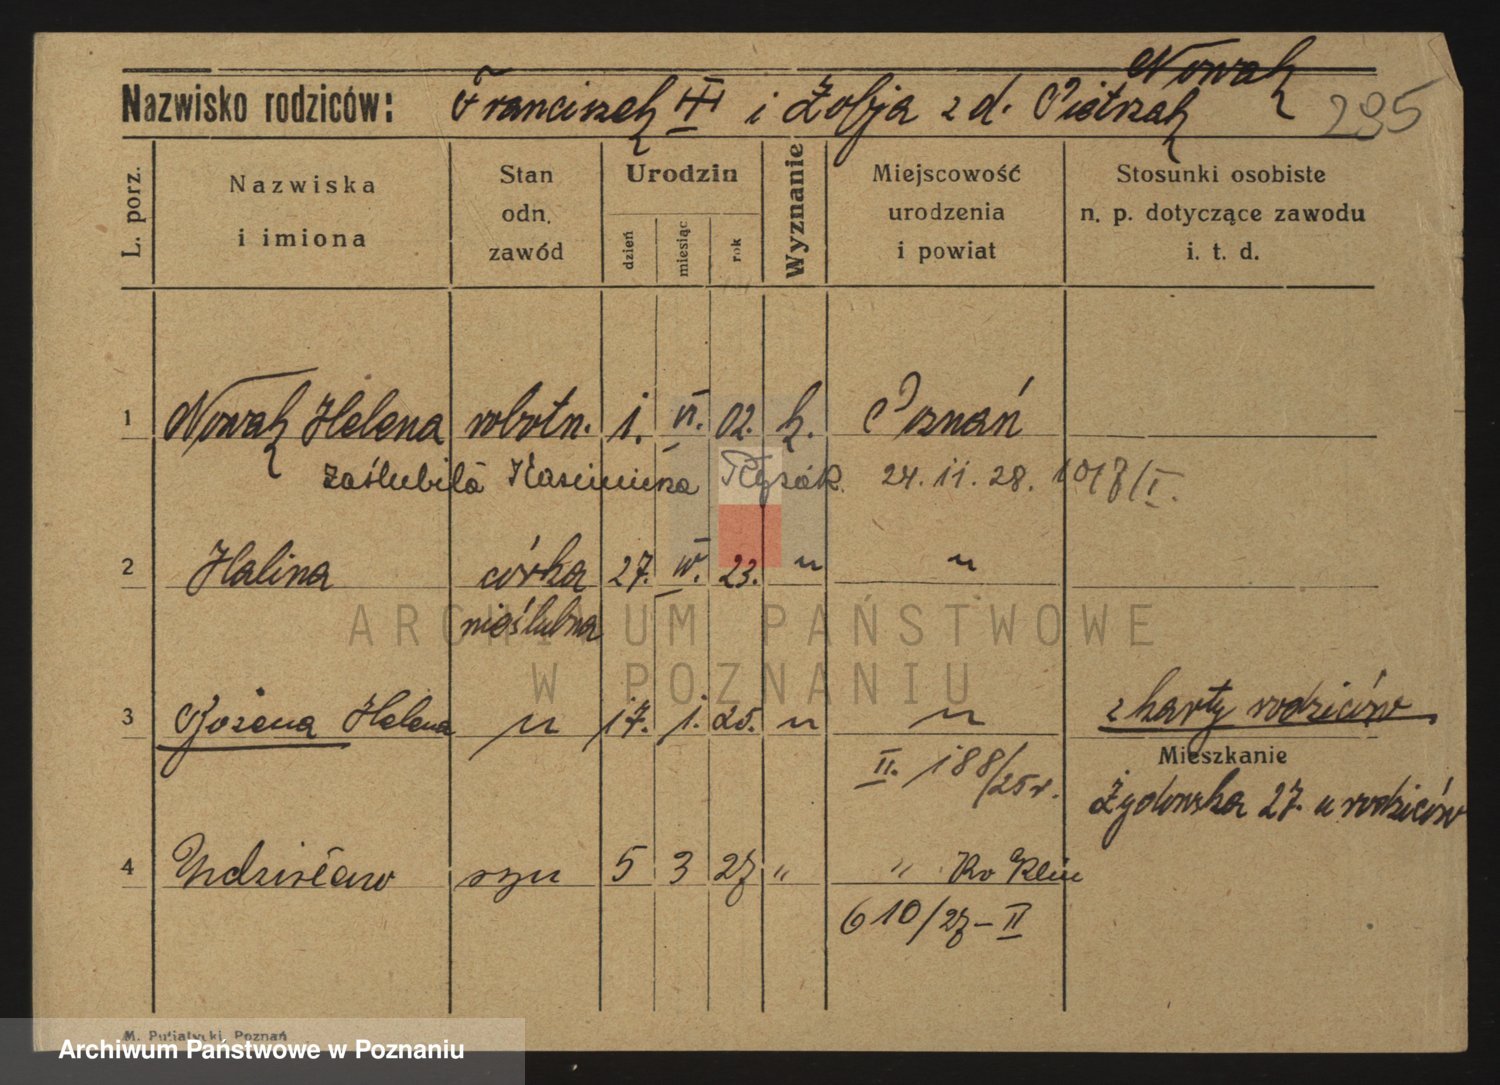 Nowak
Nazwisko rodziców: Franciszek III i Zofja z d. Pietrzak 295
L. porz. Nazwiska i imiona Stan odn. zawód Urodzin dzień miesiąc rok Wyznanie Miejscowość urodzenia i powiat Stosunki osobiste n. p. dotyczące zawodu i. t. d.
1 Nowak Helena robotn. 1. VI. 02. k. Poznań
zaślubiła Kazimierza 24. 11. 28. 1018/I.
2 Halina córka 27. IV. 23. " "
nieślubna
ARCHIWUM PAŃSTWOWE
W POZNANIU
3 Bożena Helena " 17. 1. 25. " " z karty rodziców
Mieszkanie
II. 188/25 r. Żydowska 27. u rodziców
4 Zdzisław syn 5 3 27 " "
610/27 - II
M. Putiatycki, Poznań
Archiwum Państwowe w Poznaniu